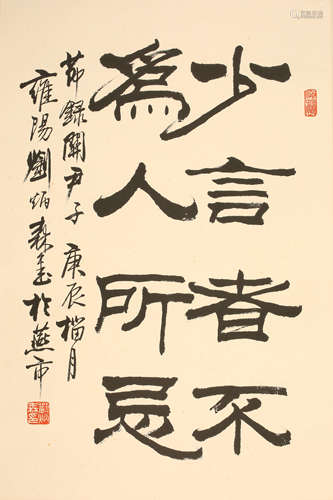 少言者不
為人所忌
節録關尹子 庚辰榴月
雍陽劉炳森書於燕市